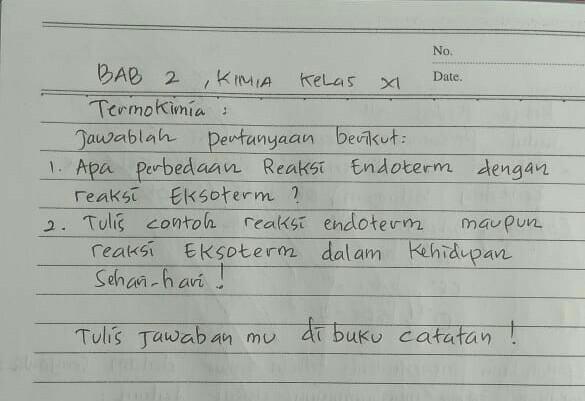 No.
Date.
BAB 2 , KIMIA KELAS XI
Termokimia :
Jawablah pertanyaan berikut:
1. Apa perbedaan Reaksi Endoterm dengan
reaksi Eksoterm ?
2. Tulis contoh reaksi endoterm maupun
reaksi Eksoterm dalam Kehidupan
Sehari-hari !
Tulis Jawaban mu di buku catatan !